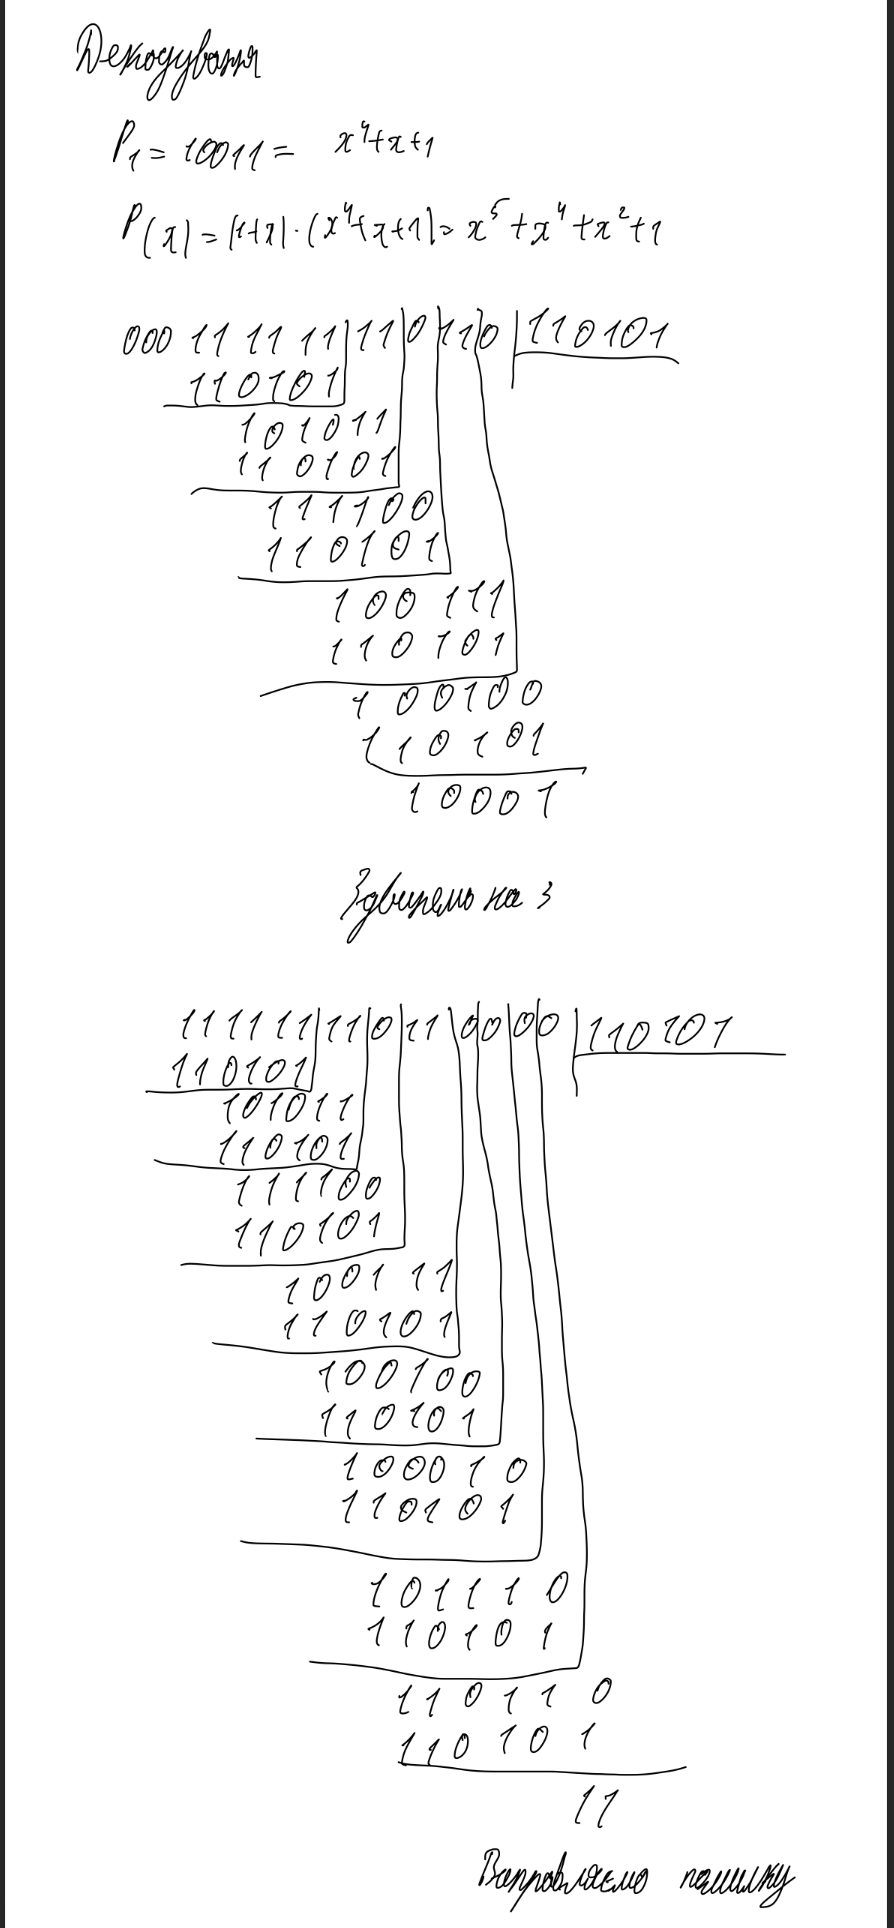 Декодування
P₁ = 10011 = x⁴+x+1
P(x) = (1+x)·(x⁴+x+1) = x⁵+x⁴+x²+1
000 11 11 11|11|0|11|0 |110101
110101
101011
110101
111100
110101
100111
110101
100100
110101
10001
Здвигаємо на 3
111111|11|0|11|00|00 |110101
110101
101011
110101
111100
110101
100111
110101
100100
110101
100010
110101
101110
110101
110110
110101
11
Виправляємо помилку